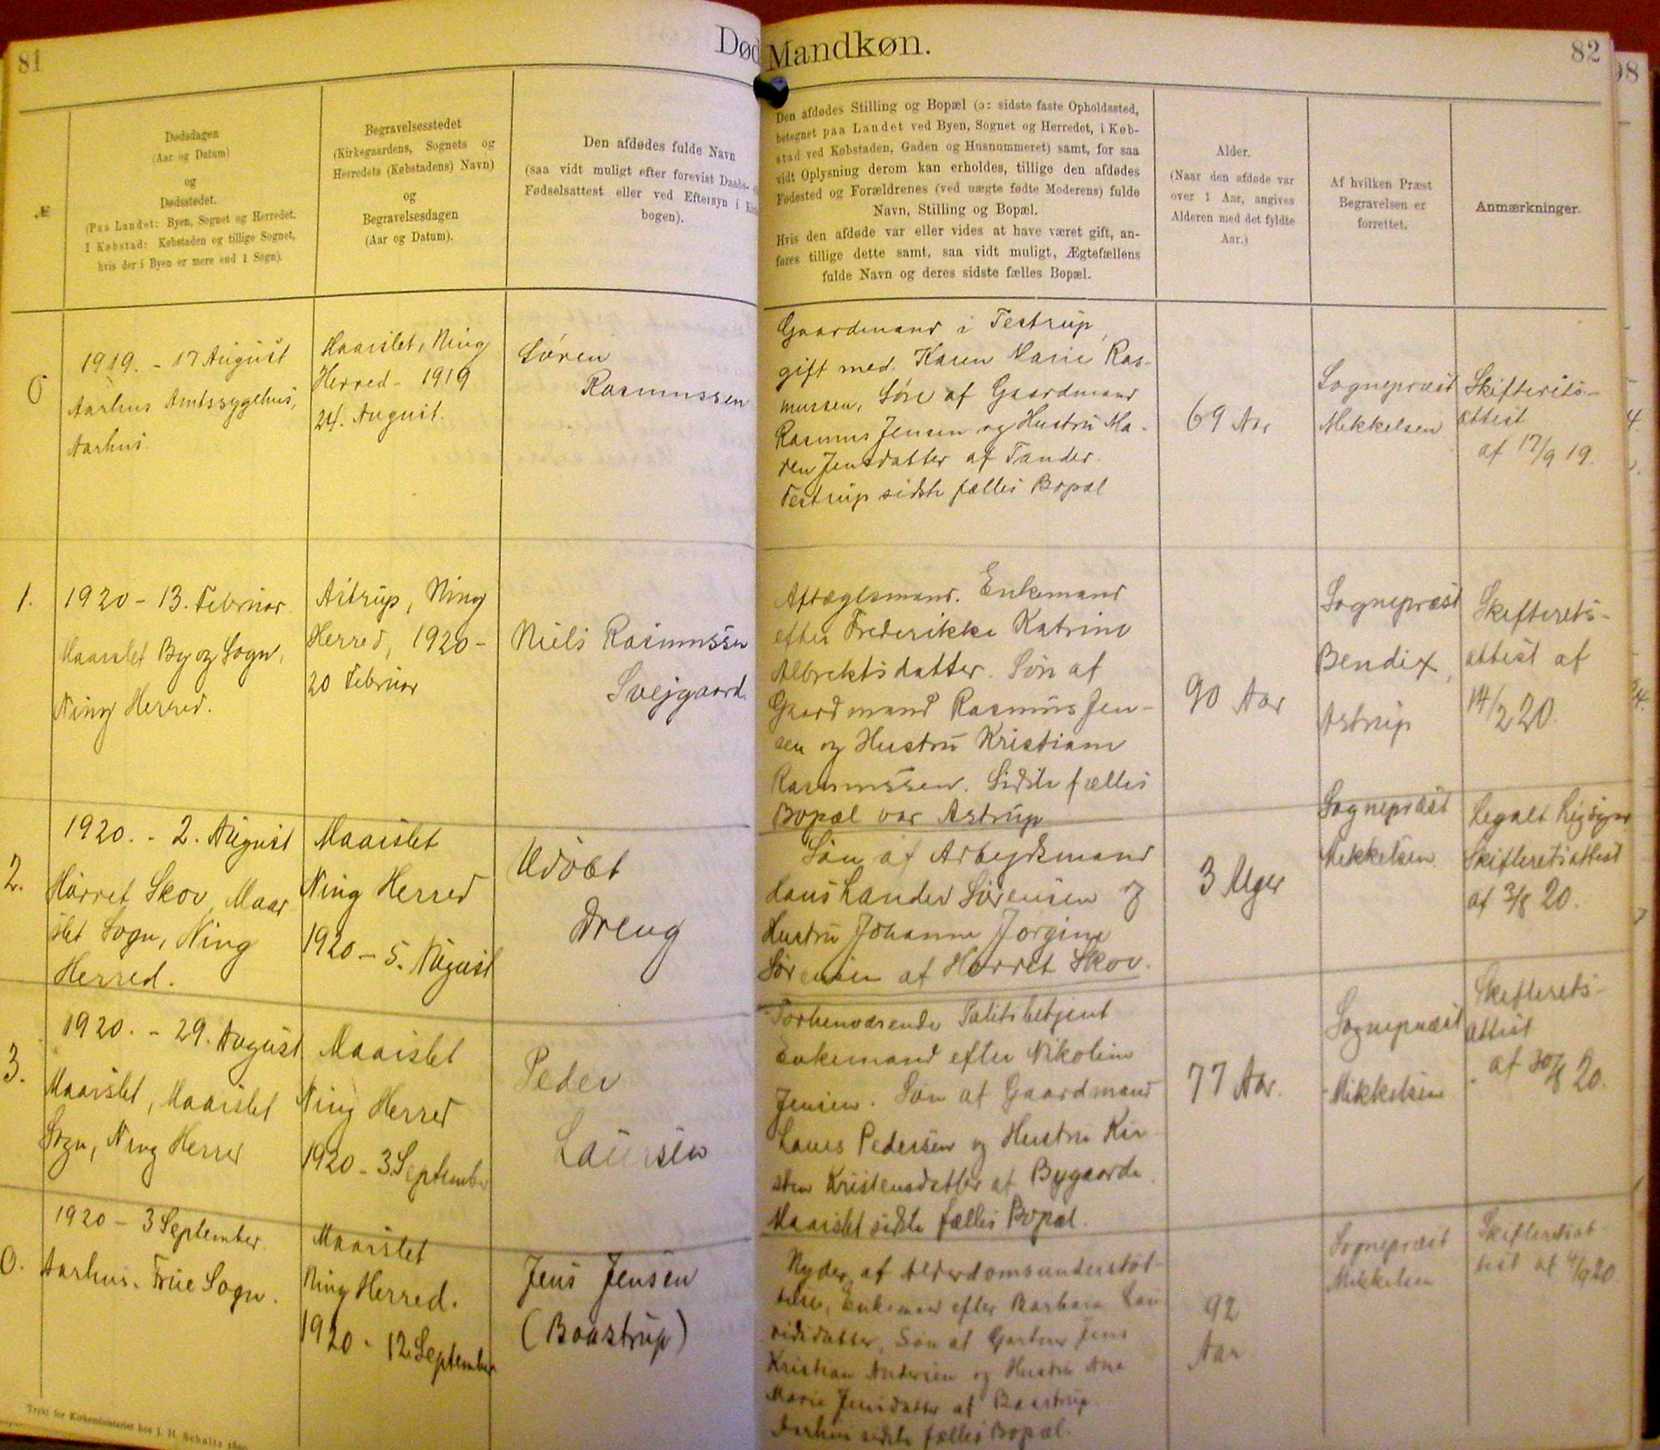 81
Død
Mandkøn.
82
98
№
Dødsdagen
(Aar og Datum)
og
Dødsstedet.
(Paa Landet: Byen, Sognet og Herredet.
I Købstad: Købstaden og tillige Sognet,
hvis der i Byen er mere end 1 Sogn).
Begravelsesstedet
(Kirkegaardens, Sognets og
Herredets (Købstadens) Navn)
og
Begravelsesdagen
(Aar og Datum).
Den afdødes fulde Navn
(saa vidt muligt efter forevist Daabs-
Fødselsattest eller ved Eftersyn i
bogen).
Den afdødes Stilling og Bopæl (ɔ: sidste faste Opholdssted,
betegnet paa Landet ved Byen, Sognet og Herredet, i Køb-
stad ved Købstaden, Gaden og Husnummeret) samt, for saa
vidt Oplysning derom kan erholdes, tillige den afdødes
Fødested og Forældrenes (ved uægte fødte Moderens) fulde
Navn, Stilling og Bopæl.
Hvis den afdøde var eller vides at have været gift, an-
føres tillige dette samt, saa vidt muligt, Ægtefællens
fulde Navn og deres sidste fælles Bopæl.
Alder.
(Naar den afdøde var
over 1 Aar, angives
Alderen med det fyldte
Aar.)
Af hvilken Præst
Begravelsen er
forrettet.
Anmærkninger.
0
1919. - 17 August
Aarhus Amtssygehus,
Aarhus.
Maarslet, Ning
Herred - 1919
24. August.
Søren
Rasmussen
Gaardmand i Testrup,
gift med Karen Marie Ras-
mussen, Søn af Gaardmand
Rasmus Jensen og Hustru Ma-
ren Jensdatter af Tander.
Testrup sidste fælles Bopæl
69 Aar
Sognepræst
Mikkelsen
Skifterets-
attest
af 17/9 19.
1.
1920 - 13. Februar.
Maarslet By og Sogn,
Ning Herred.
Astrup, Ning
Herred, 1920 -
20 Februar
Niels Rasmussen
Svejgaard
Aftægtsmand. Enkemand
efter Frederikke Katrine
Albrektsdatter. Søn af
Gaardmand Rasmus Jen-
sen og Hustru Kristiane
Rasmussen. Sidste fælles
Bopæl var Astrup
90 Aar
Sognepræst
Bendix,
Astrup
Skifterets-
attest af
14/2 20.
2.
1920. - 2. August
Hørret Skov, Maar
slet Sogn, Ning
Herred.
Maarslet
Ning Herred
1920 - 5. August
Udøbt
Dreng
Søn af Arbejdsmand
Hans Lander Sørensen og
Hustru Johanne Jørgine
Sørensen af Hørret Skov.
3 Uger
Sognepræst
Mikkelsen
Legalt Ligsyn
Skifteretsattest
af 3/8 20.
3.
1920. - 29. August
Maarslet, Maarslet
Sogn, Ning Herred
Maarslet
Ning Herred
1920 - 3 September
Peder
Laursen
Forhenværende Politibetjent
Enkemand efter Nikoline
Jensen. Søn af Gaardmand
Laurs Pedersen og Hustru Kir
sten Kristensdatter af Bygaarde.
Maarslet sidste fælles Bopæl.
77 Aar.
Sognepræst
Mikkelsen
Skifterets-
attest
af 30/8 20.
0.
1920 - 3 September.
Aarhus. Frue Sogn.
Maarslet
Ning Herred.
1920 - 12 September
Jens Jensen
(Baastrup)
Nyder af Alderdomsunderstøt-
telse, Enkemand efter Barbara Lau
ridsdatter, Søn af Gartner Jens
Kristian Andersen og Hustru Ane
Marie Jensdatter af Baastrup.
Aarhus sidste fælles Bopæl.
92
Aar
Sognepræst
Mikkelsen
Skifteretsat
test af 4/9 20
Trykt for Kirkeministeriet hos J. H. Schultz